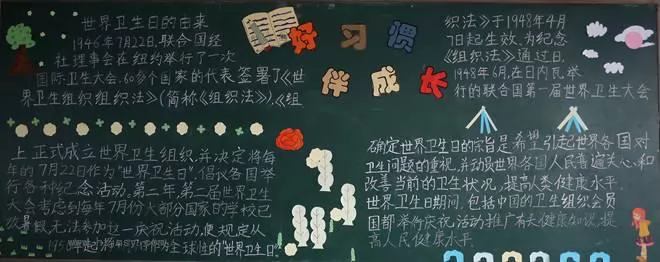 世界卫生日的由来
1946年7月22日,联合国经
社理事会在纽约举行了一次
国际卫生大会,60多个国家的代表签署了《世
界卫生组织组织法》(简称《组织法》),《组
好习惯
伴成长
织法》于1948年4月
7日起生效,为纪念
《组织法》通过日,
1948年6月,在日内瓦举
行的联合国第一届世界卫生大会
上正式成立世界卫生组织,并决定将每
年的7月22日作为"世界卫生日",倡议各国举
行各种纪念活动,第二年,第二届世界卫生
大会考虑到每年7月份大部分国家的学校已
放暑假,无法参加这一庆祝活动,便规定从
1950年起将
作为全球性的"世界卫生日。
确定世界卫生日的宗旨是希望引起世界各国对
卫生问题的重视,并动员世界各国人民普遍关心和
改善当前的卫生状况,提高人类健康水平.
世界卫生日期间,包括中国的卫生组织会员
国都举行庆祝活动,推广有关健康知识,提
高人民健康水平.